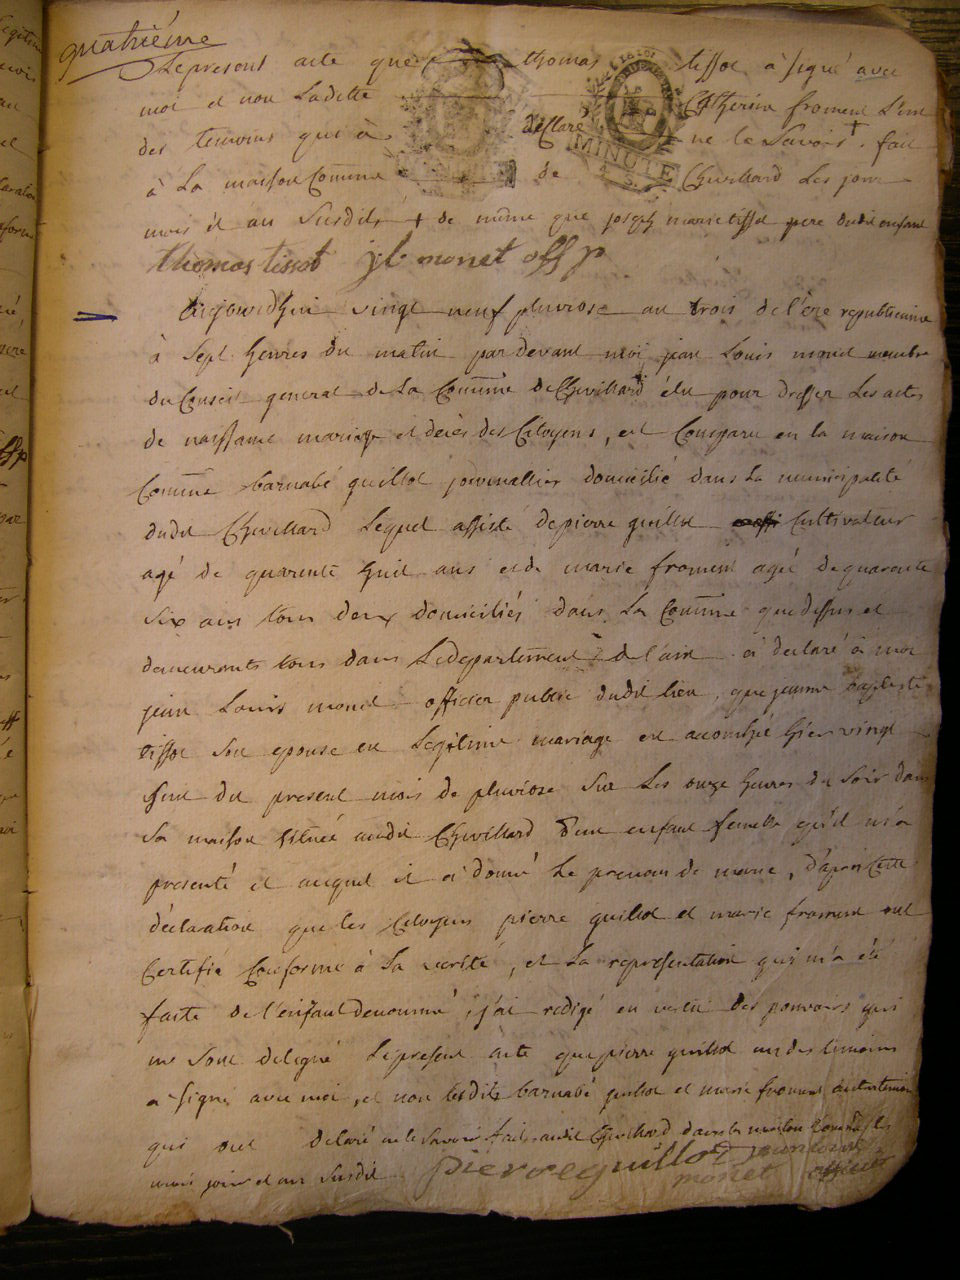 quatriéme
Le present acte que thomas tissot a signé avec
moi et non Laditte Catherine froment L'une
des temoins qui à déclaré ne le Savoir + fait
MINUTE
à La maison Commune de Chevillard Les jour
mois et an Susdits + de même que joseph marie tissot pere dudit enfant
thomas tissot jl monet off p
aujourd'hui vingt neuf pluviose an trois de l'ére republicaine
à Sept heures du matin pardevant moi jean Louis monet membre
du Conseil general de La Commune de Chevillard élu pour dresser Les actes
de naissance mariage et décès des Citoyens, est Comparu en la maison
Commune barnabé guillot journallier domicilié dans La municipalité
dudit Chevillard Lequel assisté de pierre guillot Cultivateur
agé de quarente huit ans et de marie froment agée de quarante
Six ans tous deux domiciliés dans La Commune que dessus et
demeurants tous dans Le departement de l'ain à declaré à moi
jean Louis monet officier public dudit lieu, que jeanne baptiste
tissot Son epouse en Legitime mariage est acouchée hier vingt
huit du present mois de pluviose Sur Les onze heures du Soir dans
Sa maison Située audit Chevillard d'un enfant femelle qu'il m'a
presenté et auquel il a donné Le prenom de marie, d'apres Cette
déclaration que les Citoyens pierre guillot et marie froment ont
Certifié Conforme à La verité, et La representation qui m'a été
faite de l'enfant denommé, j'ai redigé en vertu des pouvoirs qui
me Sont delegué Le present acte que pierre guillot un des temoins
a Signé avec moi, et non lesdits barnabé guillot et marie froment autre temoin
qui ont declaré ne le Savoir fait audit Chevillard dans la maison Commune les
mois jour et an Susdit pierre guillot jean louis
monet officier